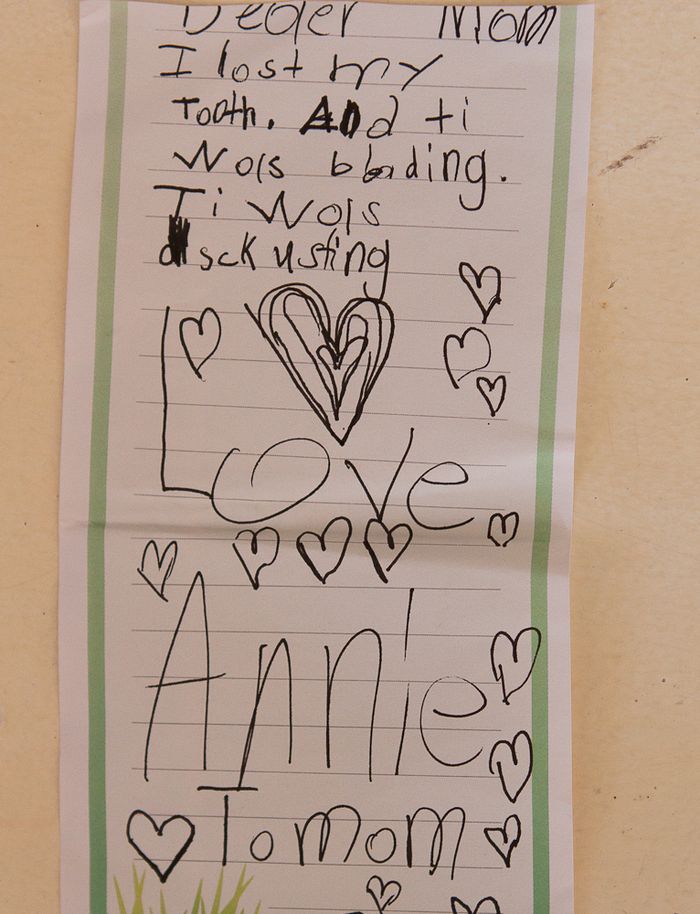 Deder Mom
I lost my
Tooth. And ti
Wols bleding.
Ti Wols
disckusting
Love
Annie
To mom